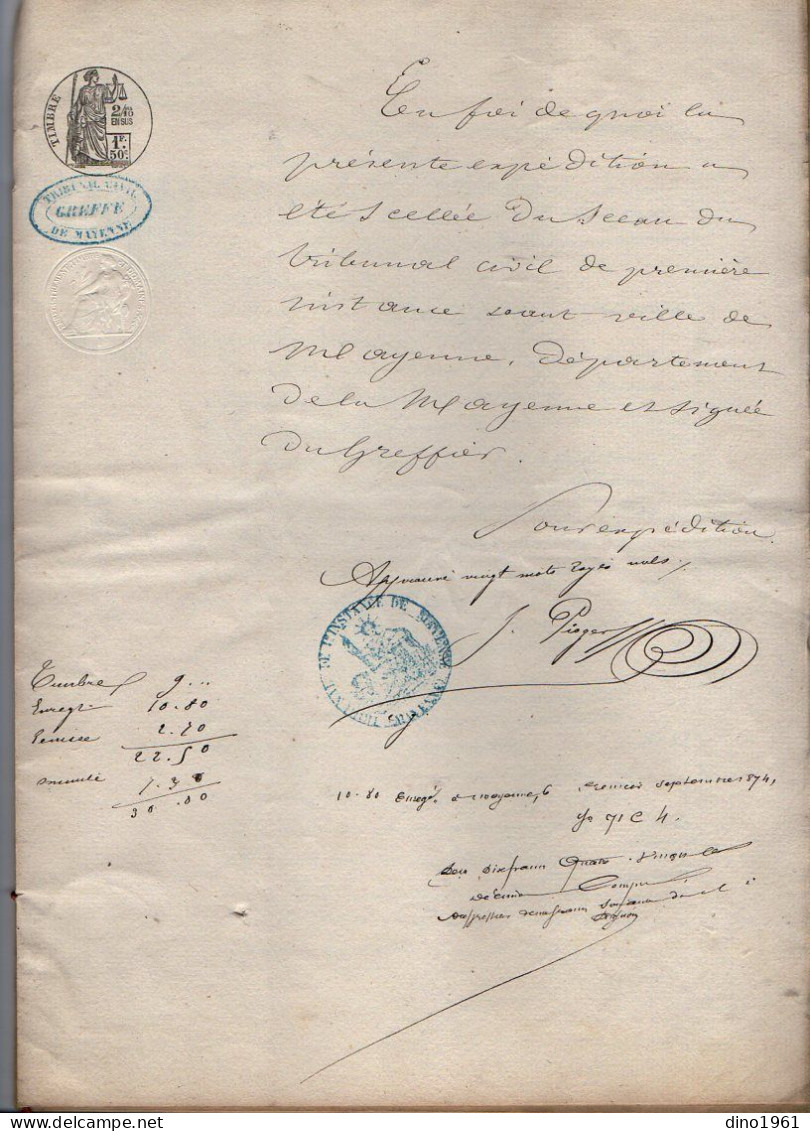 TIMBRE
2/10
EN SUS
1F.
50c
TRIBUNAL CIVIL
GREFFE
DE MAYENNE
En foi de quoi la
présente expédition a
été scellée du sceau du
tribunal civil de première
instance séant ville de
Mayenne, département
de la Mayenne et signée
du Greffier.
Pour expédition.
Approuvé vingt mots rayés nuls.
DE 1re INSTANCE DE MAYENNE
Timbre 9 ...
Enregt. 10.80
Remise 2.70
22.50
minute 7.30
30.00
10.80 Enregé. à Mayenne, septembre 1874,
fo 71 C 4.
Reçu dix francs quatre vingt
décimes compris
dino1961